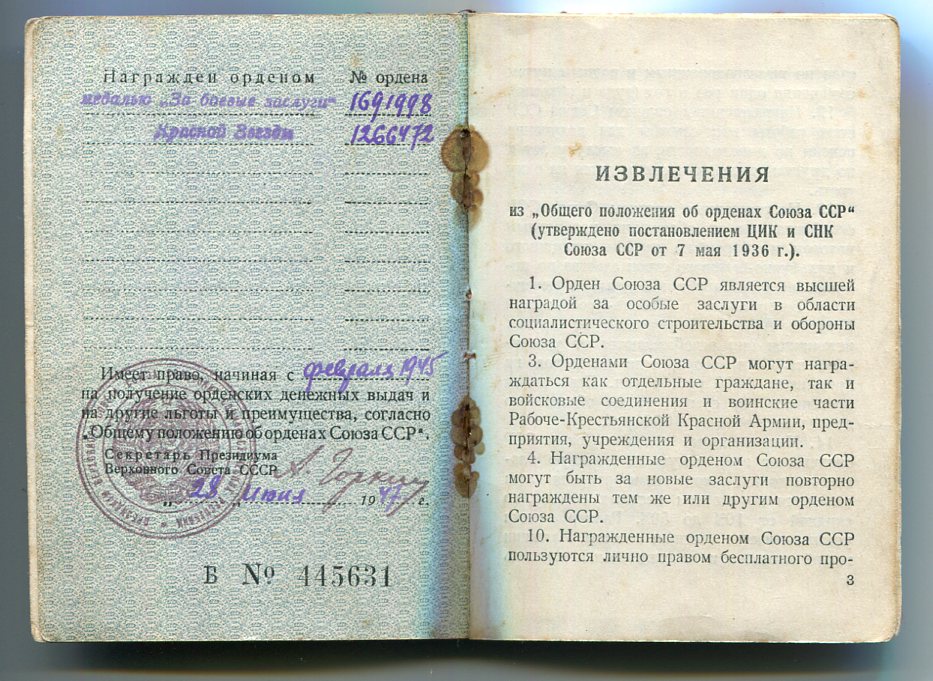 Награжден орденом № ордена
медалью „За боевые заслуги“ 1691998
Красной Звезды 1266472
Имеет право, начиная с февраля 1945
на получение орденских денежных выдач и
на другие льготы и преимущества, согласно
„Общему положению об орденах Союза ССР“.
Секретарь Президиума
Верховного Совета СССР А. Горкин
„28 июня 1947 г.
Б № 445631
ИЗВЛЕЧЕНИЯ
из „Общего положения об орденах Союза ССР“
(утверждено постановлением ЦИК и СНК
Союза ССР от 7 мая 1936 г.).
1. Орден Союза ССР является высшей
наградой за особые заслуги в области
социалистического строительства и обороны
Союза ССР.
3. Орденами Союза ССР могут награ-
ждаться как отдельные граждане, так и
войсковые соединения и воинские части
Рабоче-Крестьянской Красной Армии, пред-
приятия, учреждения и организации.
4. Награжденные орденом Союза ССР
могут быть за новые заслуги повторно
награждены тем же или другим орденом
Союза ССР.
10. Награжденные орденом Союза ССР
пользуются лично правом бесплатного про-
3